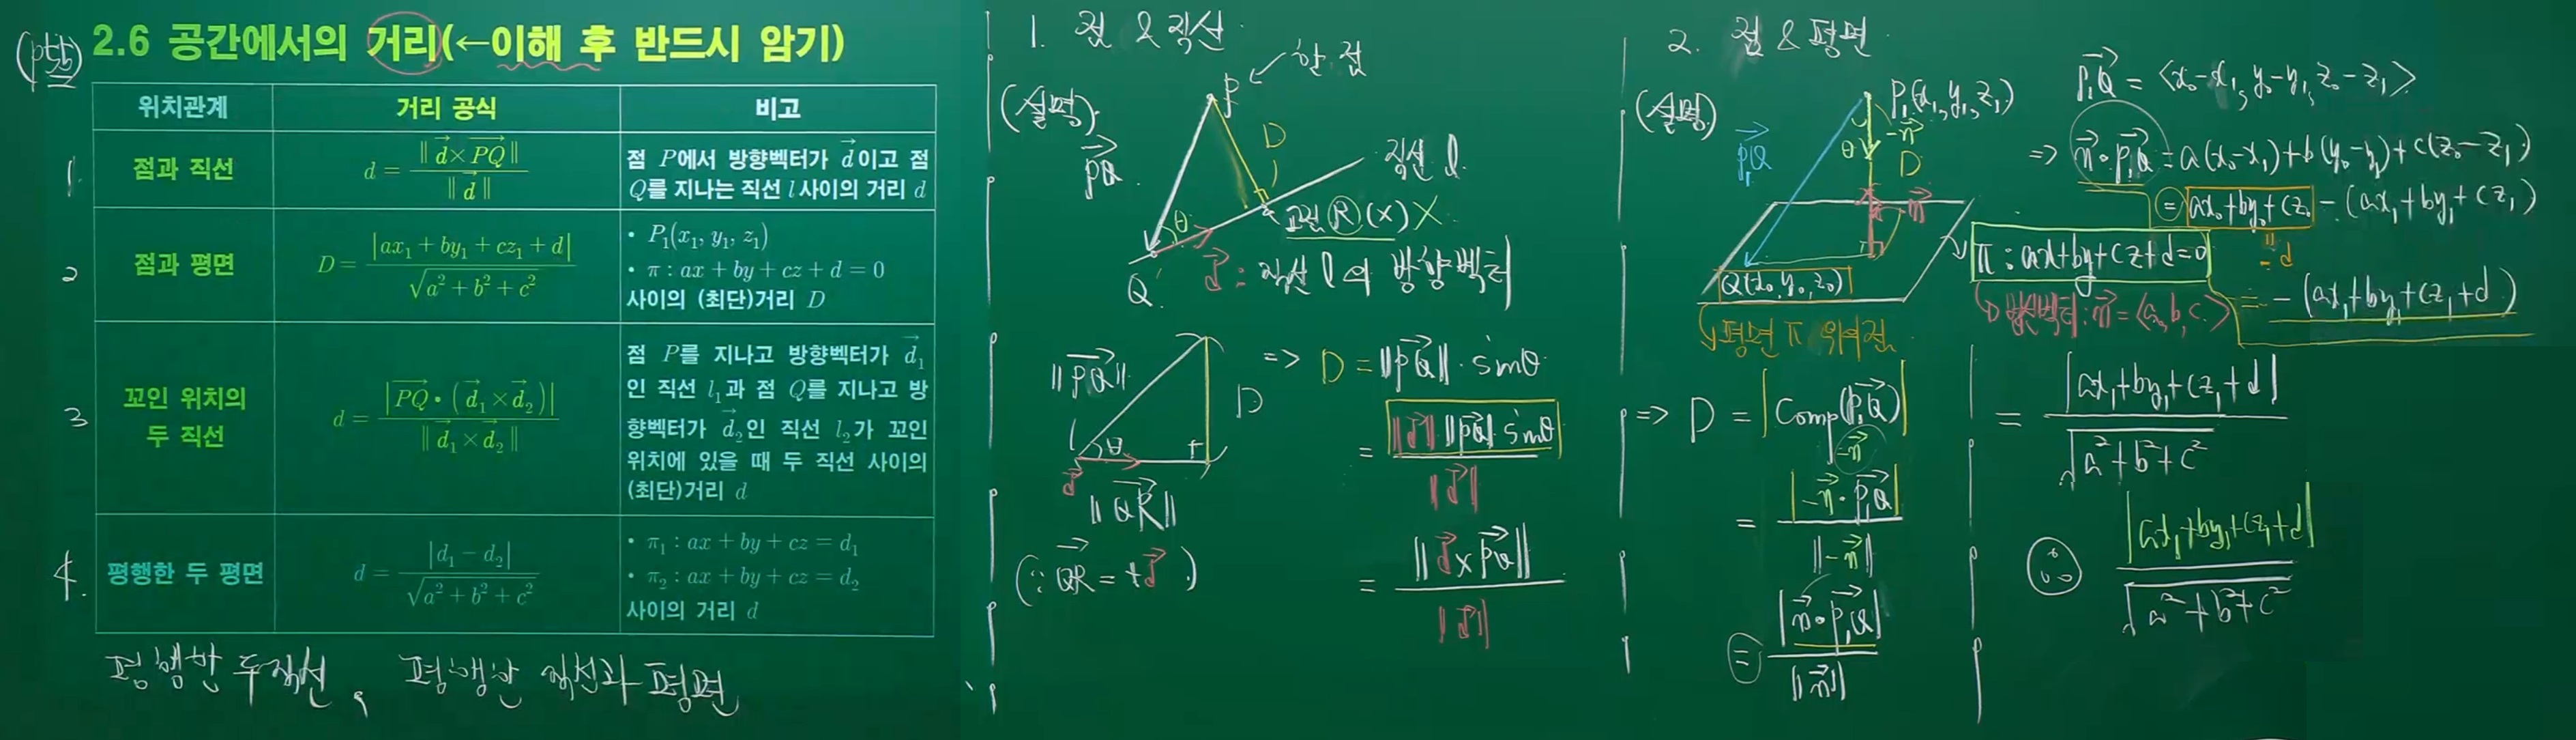 2.6 공간에서의 거리(←이해 후 반드시 암기)
위치관계 거리 공식 비고
1. 점과 직선 d = ‖d⃗×PQ⃗‖ / ‖d⃗‖
점 P에서 방향벡터가 d⃗이고 점
Q를 지나는 직선 l 사이의 거리 d
2 점과 평면 D = |ax₁+by₁+cz₁+d| / √(a²+b²+c²)
• P₁(x₁, y₁, z₁)
• π : ax+by+cz+d=0
사이의 (최단)거리 D
3 꼬인 위치의
두 직선
d = |PQ⃗•(d⃗₁×d⃗₂)| / ‖d⃗₁×d⃗₂‖
점 P를 지나고 방향벡터가 d⃗₁
인 직선 l₁과 점 Q를 지나고 방
향벡터가 d⃗₂인 직선 l₂가 꼬인
위치에 있을 때 두 직선 사이의
(최단)거리 d
4. 평행한 두 평면 d = |d₁−d₂| / √(a²+b²+c²)
• π₁ : ax+by+cz=d₁
• π₂ : ax+by+cz=d₂
사이의 거리 d
평행한 두직선, 평행한 직선과 평면
1. 점 & 직선.
(설명)
P ← 한 점
PQ⃗
D
직선 l.
θ
교점 R (x) X
Q
d⃗ : 직선 l의 방향벡터
‖PQ⃗‖
D
θ
d⃗
‖QR⃗‖
(∵ QR⃗ = td⃗)
⇒ D = ‖PQ⃗‖·sinθ
= ‖d⃗‖‖PQ⃗‖sinθ / ‖d⃗‖
= ‖d⃗×PQ⃗‖ / ‖d⃗‖
2. 점 & 평면.
(설명)
P₁(x₁, y₁, z₁)
P₁Q⃗
θ
-n⃗
D
n⃗
Q(x₀, y₀, z₀)
평면 π 위의 점
π : ax+by+cz+d=0
법선벡터 : n⃗ = ⟨a, b, c⟩
P₁Q⃗ = ⟨x₀-x₁, y₀-y₁, z₀-z₁⟩
⇒ n⃗•P₁Q⃗ = a(x₀-x₁)+b(y₀-y₁)+c(z₀-z₁)
= ax₀+by₀+cz₀ - (ax₁+by₁+cz₁)
= -d
= -(ax₁+by₁+cz₁+d)
⇒ D = |Comp₋ₙ⃗(P₁Q⃗)|
= |-n⃗•P₁Q⃗| / ‖-n⃗‖
= |n⃗•P₁Q⃗| / ‖n⃗‖
= |ax₁+by₁+cz₁+d| / √(a²+b²+c²)
∴ |ax₁+by₁+cz₁+d| / √(a²+b²+c²)